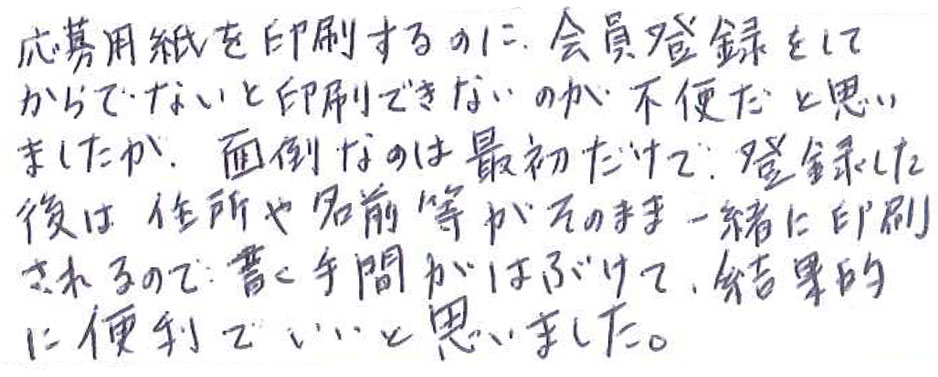 応募用紙を印刷するのに、会員登録をして
からでないと印刷できないのが不便だと思い
ましたが、面倒なのは最初だけで、登録した
後は住所や名前等がそのまま一緒に印刷
されるので、書く手間がはぶけて、結果的
に便利でいいと思いました。